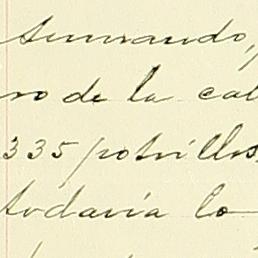 sumando,
ro de la cal
335 potrillos,
todavía lo